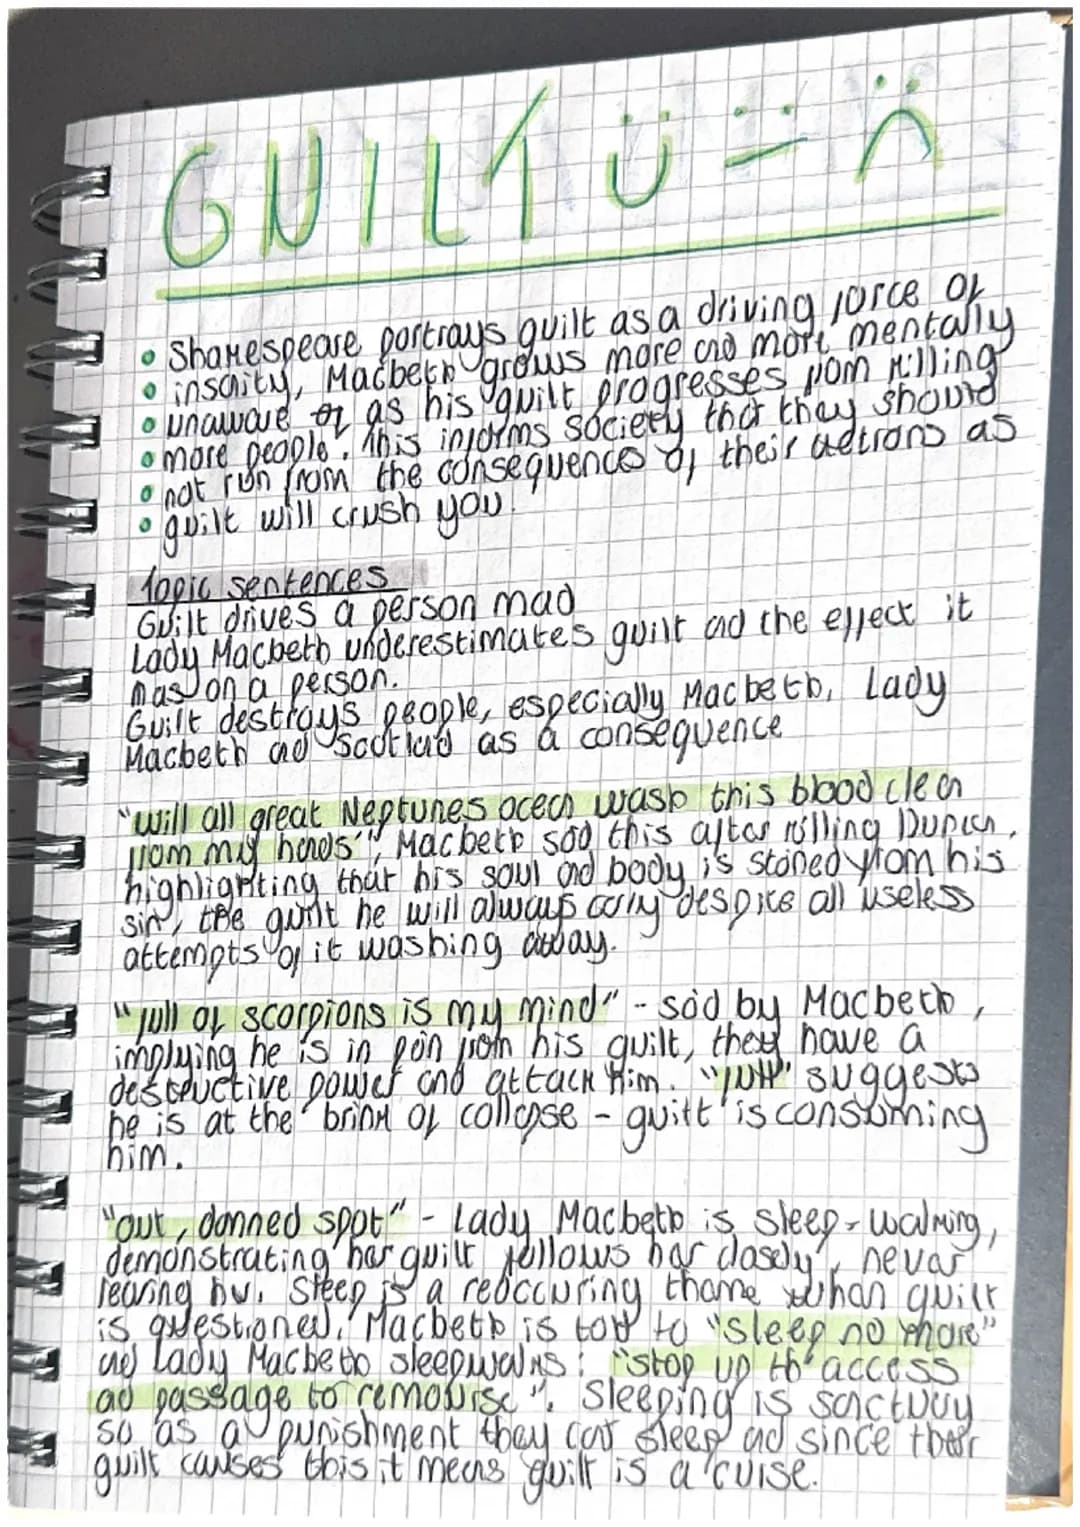 GUILT
• Shakespeare portrays guilt as a driving force of
• insanity, Macbeth grows more and more mentally
• unaware as his guilt progresses from killing
• more people. This informs society that they should
• not run from the consequences of their actions as
• guilt will crush you.
Topic sentences
Guilt drives a person mad
Lady Macbeth underestimates guilt and the effect it
has on a person.
Guilt destroys people, especially Macbeth, Lady
Macbeth and Scotland as a consequence
"will all great Neptunes ocean wash this blood clean
from my hands", Macbeth said this after killing Duncan,
highlighting that his soul and body is stained from his
sin, the guilt he will always carry despite all useless
attempts of it washing away.
"full of scorpions is my mind" - said by Macbeth,
implying he is in pain from his guilt, they have a
destructive power and attack him. "full" suggests
he is at the brink of collapse - guilt is consuming
him.
"out, damned spot" - Lady Macbeth is sleep-walking,
demonstrating her guilt follows her closely, never
leaving her. Sleep is a reoccuring theme when guilt
is questioned, Macbeth is told to "sleep no more"
and Lady Macbeth sleepwalks: "stop up th'access
and passage to remourse". Sleeping is sanctuary
so as a punishment they cant sleep and since their
guilt causes this it means guilt is a curse.